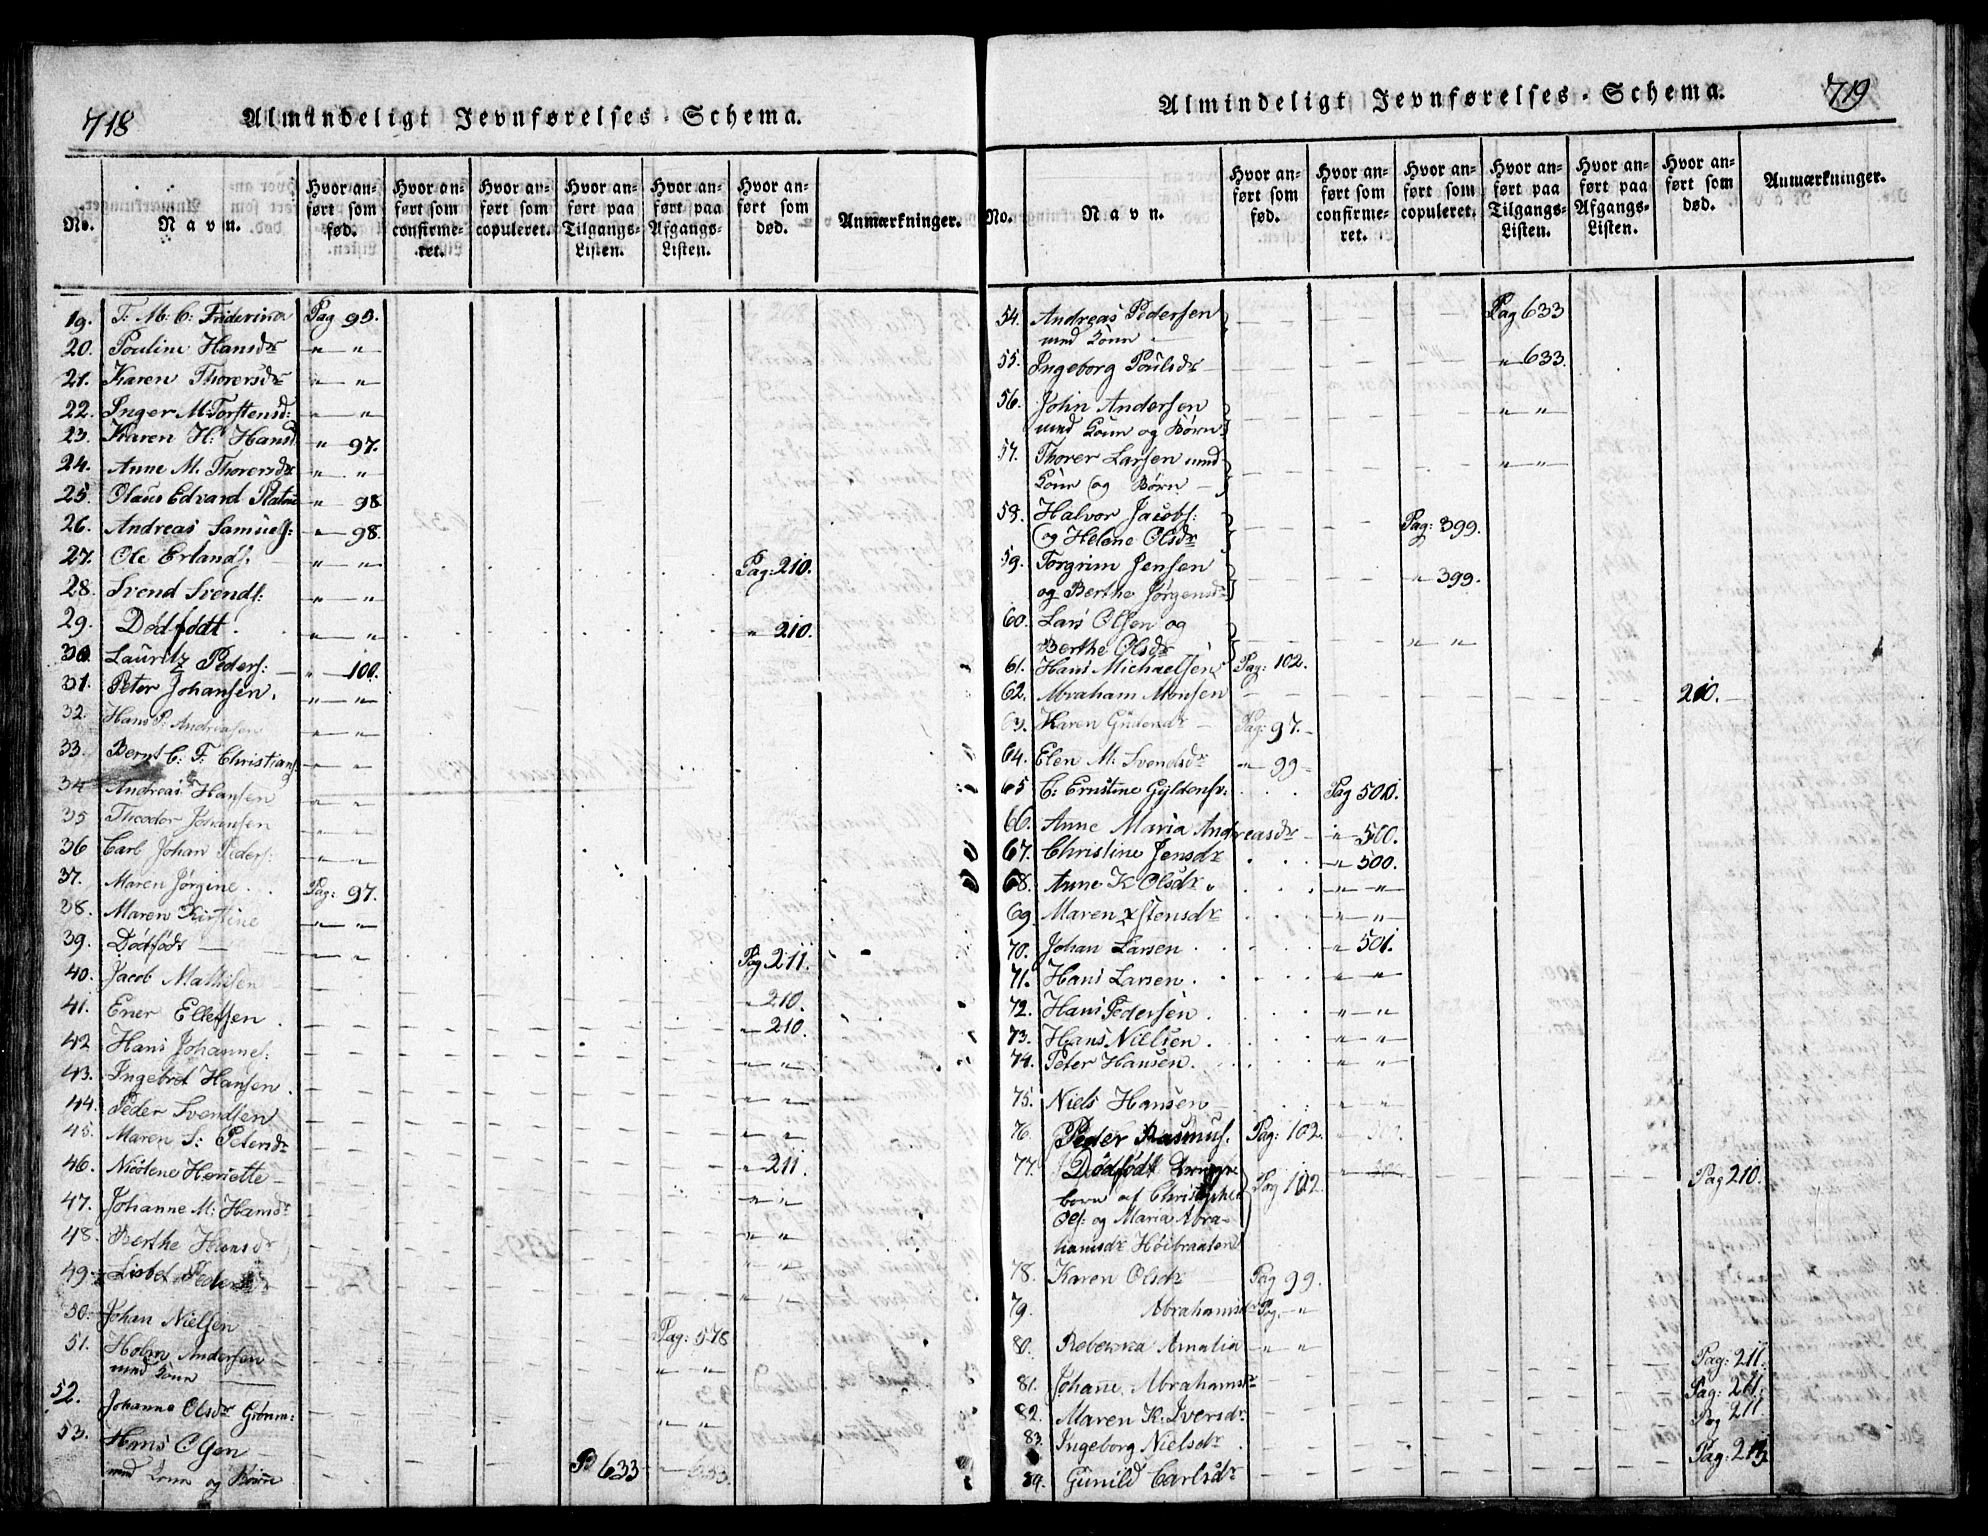 718
Almindeligt Jevnførelses-Schema.
No. Navn. Hvor anført som fød. Hvor anført som confirmeret. Hvor anført som copuleret. Hvor anført paa Tilgangs-Listen. Hvor anført paa Afgangs-Listen. Hvor anført som død. Anmærkninger.
19. T: M: C: Friderica Pag 95.
20. Pouline Hansdr " — "
21. Karen Thorersdr " — "
22. Inger M: Torstensd: " — "
23. Karen H: Hansd " 97.
24. Anne M. Thorersdr " — "
25. Olaus Edvard " 98
26. Andreas Samuels: " — 98.
27. Ole Erlands. " — " Pag: 210.
28. Svend Svends: " — "
29. Dødfødt. " — " " 210.
30. Lauritz Peders: " — 100.
31. Peter Johansen. " — "
32. Hans P. Andreasen " — "
33. Bernt C: F: Christians: " — "
34 Andreas Hansen " — "
35 Theodor Johansen " — "
36 Carl Johan Peders: " — "
37. Maren Jørgine. Pag: 97.
38. Maren Kirstine " — "
39. Dødfødt — " — " Pag 211.
40. Jacob Mathisen " 210.
41. Ener Ellefsen. " 210.
42 Hans Johannes: " — "
43. Ingebret Hansen. " — "
44. Peder Svendsen
45. Maren S: Petersdr " — "
46. Nicolene Henriette — " 211.
47. Johanne M: Hansdr " — "
48. Berthe Hansdr " — "
49. Lisbet Peders
50. Johan Nielsen Pag: 578
51. Holm Andersen " — "
med Kone
52. Johanne Olsdr " — "
53. Hans
med Kone og Børn P 633 — 633.
719
Almindeligt Jevnførelses-Schema.
No. Navn. Hvor anført som fød. Hvor anført som confirmeret. Hvor anført som copuleret. Hvor anført paa Tilgangs-Listen. Hvor anført paa Afgangs-Listen. Hvor anført som død. Anmærkninger.
54. Andreas Pedersen Pag 633
med Kone —
55. Ingeborg Poulsdr " 633.
56. John Andersen " "
med Kone og Børn
57. Thorer Larsen med " — "
Kone og Børn
58. Halvor Jacobs: Pag: 399.
og Helene Olsdr
59. Torgrim Jensen " 399.
og Berthe Jørgensdr
60. Lars Olsen og " "
Berthe Olsdr
61. Hans Michaelsen Pag: 102.
62. Abraham Monsen 210.
63. Karen Pag: 97.
64. Elen M: Svendsdr " 99
65 C: Ernstine Gyldens: Pag 500.
66. Anne Maria Andreasdr " 500.
67. Christine Jensdr " 500.
68. Anne K Olsdr " — "
69. Maren Xstensdr " — "
70. Johan Larsen " 501.
71. Hans Larsen. " — "
72. Hans Pedersen. " — "
73. Hans Nielsen. " — "
74. Peter Hansen. " — "
75. Niels Hansen " — "
76. Peder Rasmus. Pag: 102.
77. Dødfødt Drenge Pag 102. Pag 210.
barn af Christopher
Ols: og Maria Abra-
hamsdr Høibraaten
78. Karen Olsdr Pag 99.
79. Abrahamsdr Pag. "
80. Rebecka Amalia " " Pag: 211.
81. Johane. Abrahamsdr Pag: 211.
82. Maren K. Iversdr. Pag 211
83. Ingeborg Nielsdr.
84. Gunild Carlsdr